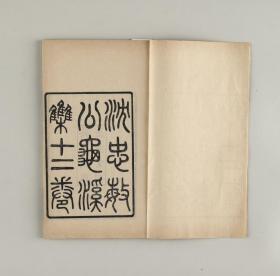 沈忠敏
公龜溪
集十二卷